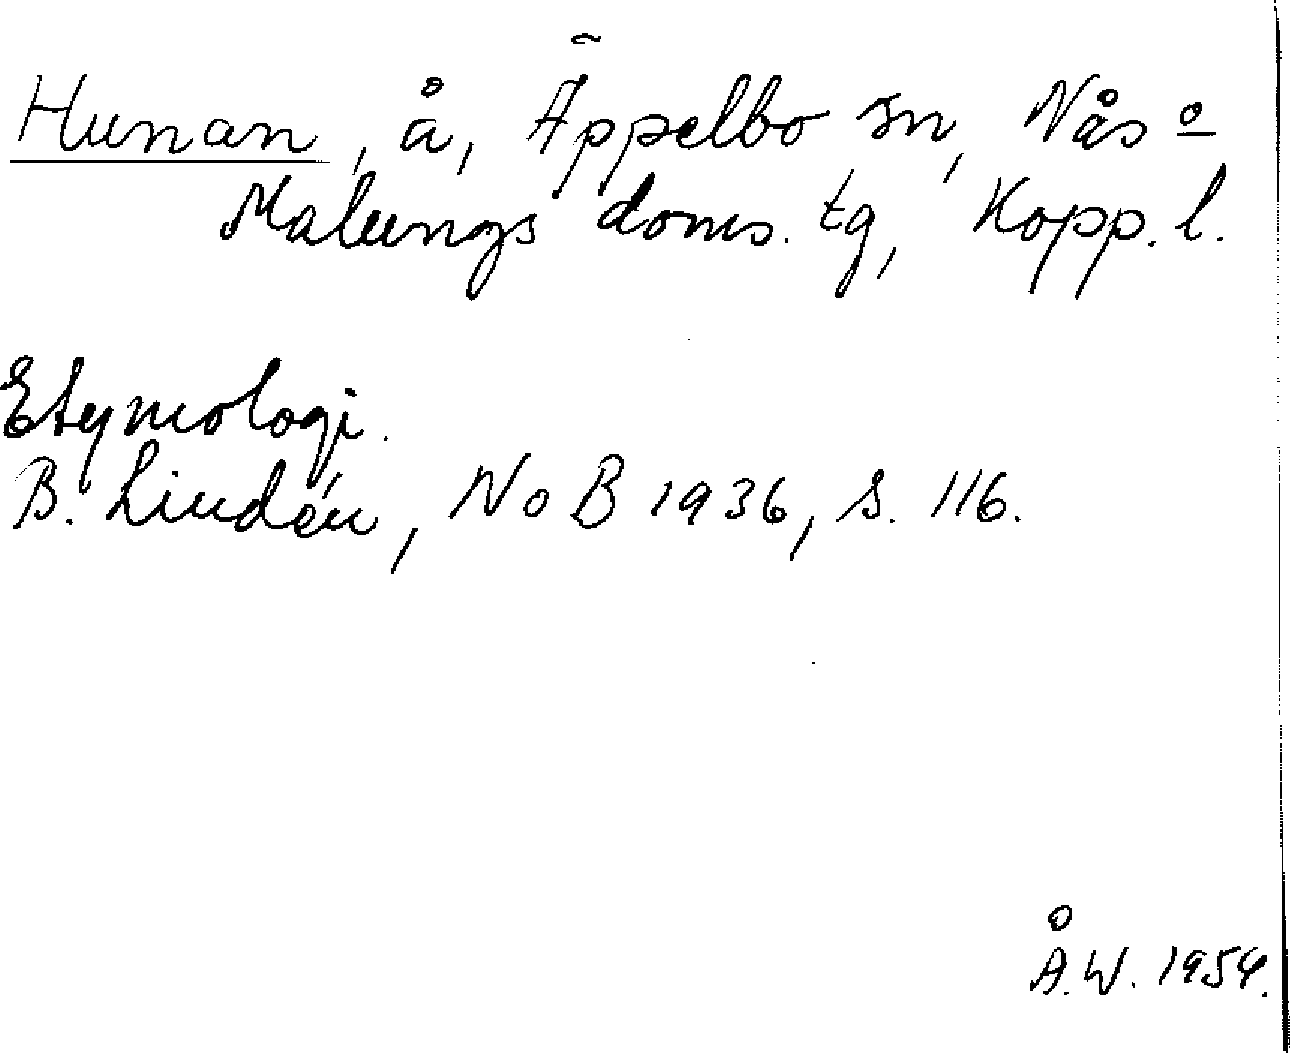 Hunan, å, Äppelbo sn, Nås o
Malungs doms. tg, Kopp. l.
Etymologi.
B. Lindén, NoB 1936, s. 116.
Å.W. 1954.